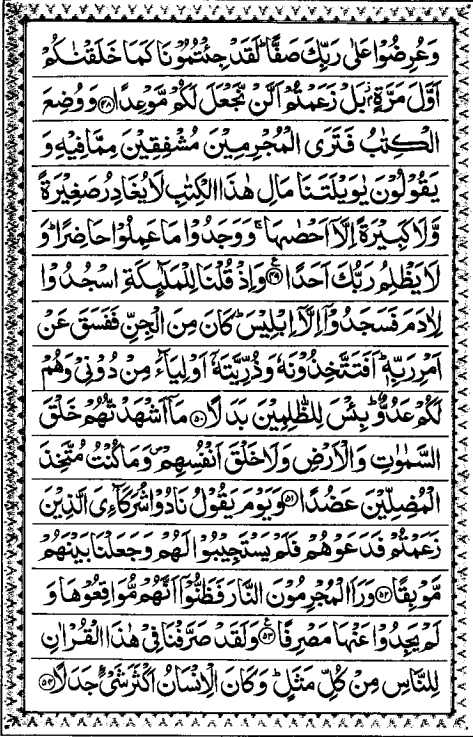 وَعُرِضُوْا عَلٰى رَبِّكَ صَفًّا ؕ لَقَدْ جِئْتُمُوْنَا كَمَا خَلَقْنٰكُمْ
اَوَّلَ مَرَّةٍۢ ؗ بَلْ زَعَمْتُمْ اَلَّنْ نَّجْعَلَ لَكُمْ مَّوْعِدًا ﴿۴۸﴾ وَوُضِعَ
الْكِتٰبُ فَتَرَى الْمُجْرِمِيْنَ مُشْفِقِيْنَ مِمَّا فِيْهِ وَ
يَقُوْلُوْنَ يٰوَيْلَتَنَا مَالِ هٰذَا الْكِتٰبِ لَا يُغَادِرُ صَغِيْرَةً
وَّلَا كَبِيْرَةً اِلَّاۤ اَحْصٰىهَا ۚ وَوَجَدُوْا مَا عَمِلُوْا حَاضِرًا ؕ وَ
لَا يَظْلِمُ رَبُّكَ اَحَدًا ﴿۴۹﴾ وَاِذْ قُلْنَا لِلْمَلٰٓئِكَةِ اسْجُدُوْا
لِاٰدَمَ فَسَجَدُوْۤا اِلَّاۤ اِبْلِيْسَ ؕ كَانَ مِنَ الْجِنِّ فَفَسَقَ عَنْ
اَمْرِ رَبِّهٖ ؕ اَفَتَتَّخِذُوْنَهٗ وَذُرِّيَّتَهٗۤ اَوْلِيَآءَ مِنْ دُوْنِيْ وَهُمْ
لَكُمْ عَدُوٌّ ؕ بِئْسَ لِلظّٰلِمِيْنَ بَدَلًا ﴿۵۰﴾ مَاۤ اَشْهَدْتُّهُمْ خَلْقَ
السَّمٰوٰتِ وَالْاَرْضِ وَلَا خَلْقَ اَنْفُسِهِمْ ۪ وَمَا كُنْتُ مُتَّخِذَ
الْمُضِلِّيْنَ عَضُدًا ﴿۵۱﴾ وَيَوْمَ يَقُوْلُ نَادُوْا شُرَكَآءِيَ الَّذِيْنَ
زَعَمْتُمْ فَدَعَوْهُمْ فَلَمْ يَسْتَجِيْبُوْا لَهُمْ وَجَعَلْنَا بَيْنَهُمْ
مَّوْبِقًا ﴿۵۲﴾ وَرَاَ الْمُجْرِمُوْنَ النَّارَ فَظَنُّوْۤا اَنَّهُمْ مُّوَاقِعُوْهَا وَ
لَمْ يَجِدُوْا عَنْهَا مَصْرِفًا ﴿۵۳﴾ وَلَقَدْ صَرَّفْنَا فِيْ هٰذَا الْقُرْاٰنِ
لِلنَّاسِ مِنْ كُلِّ مَثَلٍ ؕ وَكَانَ الْاِنْسَانُ اَكْثَرَ شَيْءٍ جَدَلًا ﴿۵۴﴾